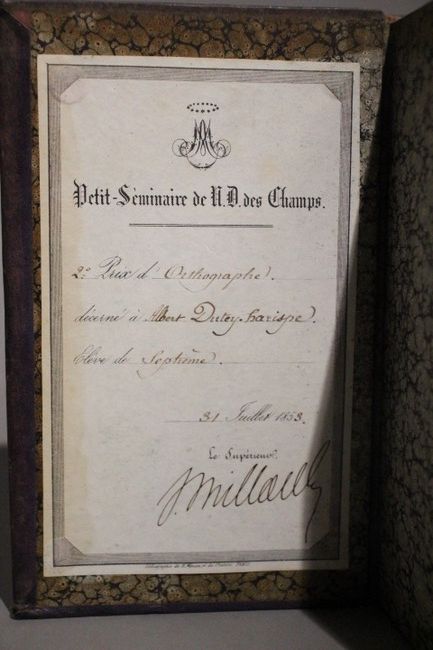 Petit-Séminaire de N.D. des Champs.
2e Prix d'Orthographe.
décerné à Albert Dutey-harispe.
Elève de Septième.
31 Juillet 1853.
Le Supérieur,